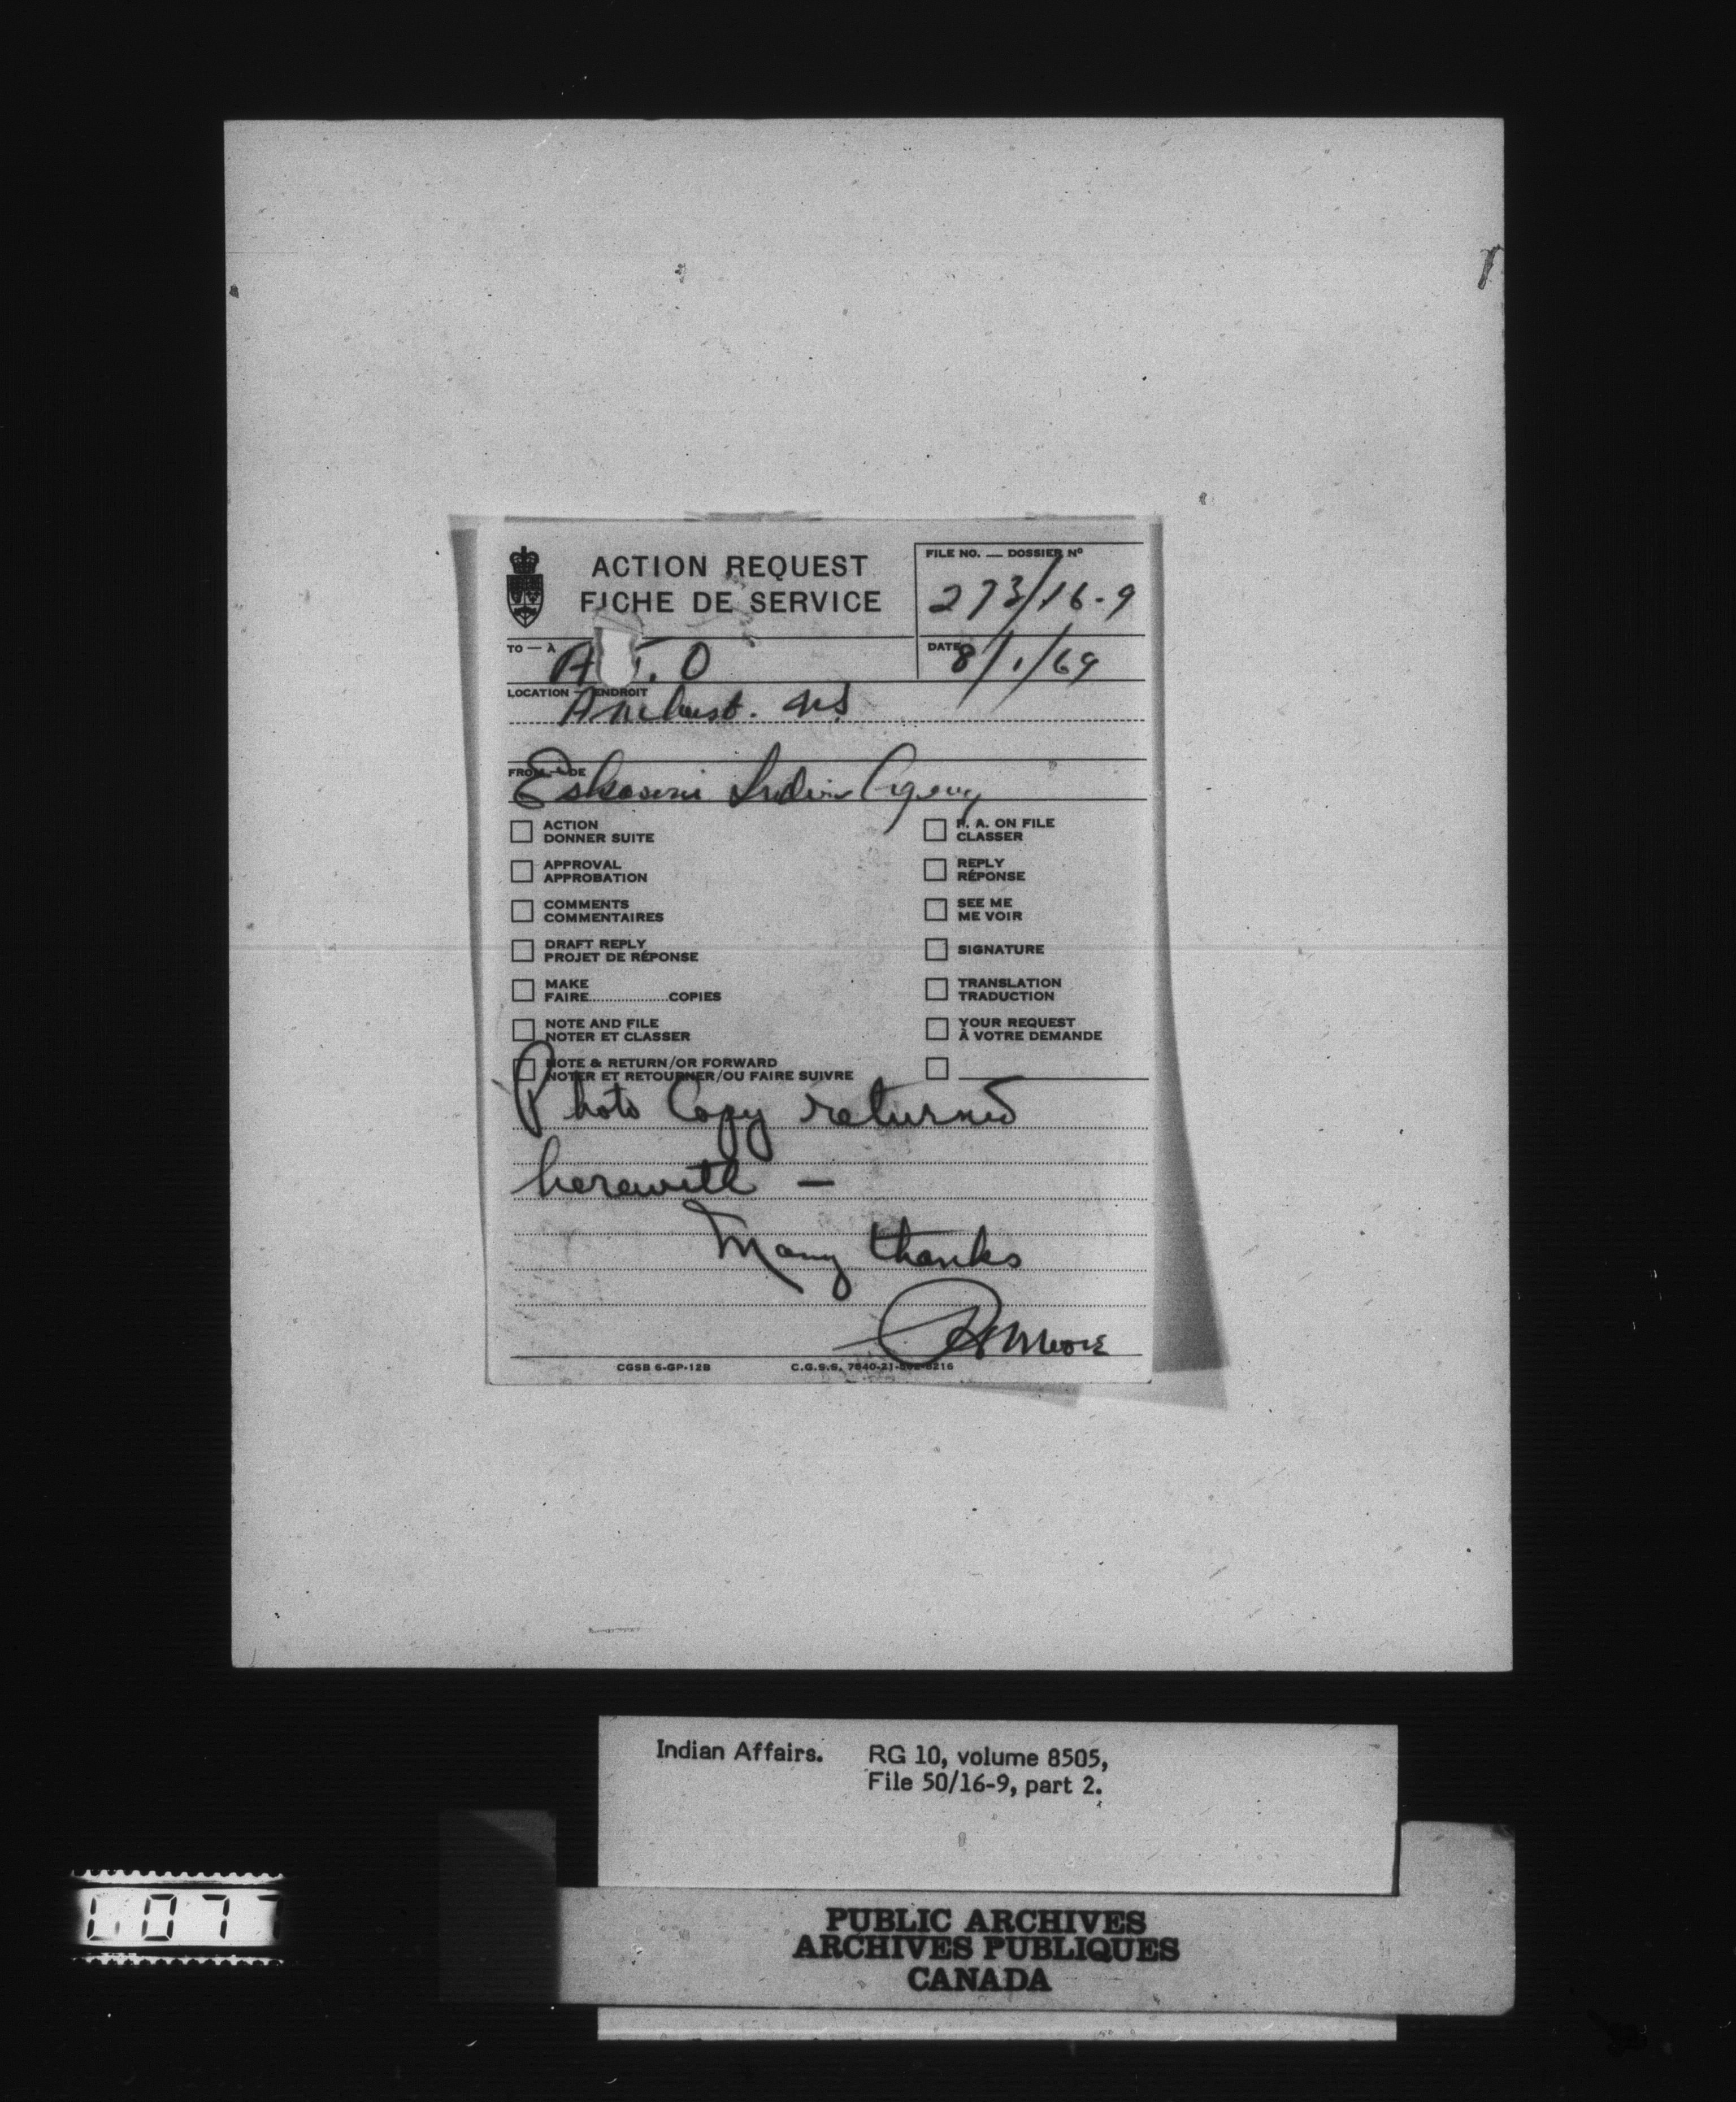 ACTION REQUEST
FICHE DE SERVICE
FILE NO. — DOSSIER Nº
273/16-9
TO — À
A . O
DATE
8/1/69
LOCATION — ENDROIT
Amherst. NS
FROM — DE
Eskasoni Indian Agency
ACTION
DONNER SUITE
P. A. ON FILE
CLASSER
APPROVAL
APPROBATION
REPLY
RÉPONSE
COMMENTS
COMMENTAIRES
SEE ME
ME VOIR
DRAFT REPLY
PROJET DE RÉPONSE
SIGNATURE
MAKE
FAIRE....................COPIES
TRANSLATION
TRADUCTION
NOTE AND FILE
NOTER ET CLASSER
YOUR REQUEST
À VOTRE DEMANDE
NOTE & RETURN/OR FORWARD
NOTER ET RETOURNER/OU FAIRE SUIVRE
Photo Copy returned
herewith —
Many thanks
Moore
CGSB 6-GP-12B
C.G.S.S. 7540-21-
Indian Affairs. RG 10, volume 8505,
File 50/16-9, part 2.
PUBLIC ARCHIVES
ARCHIVES PUBLIQUES
CANADA